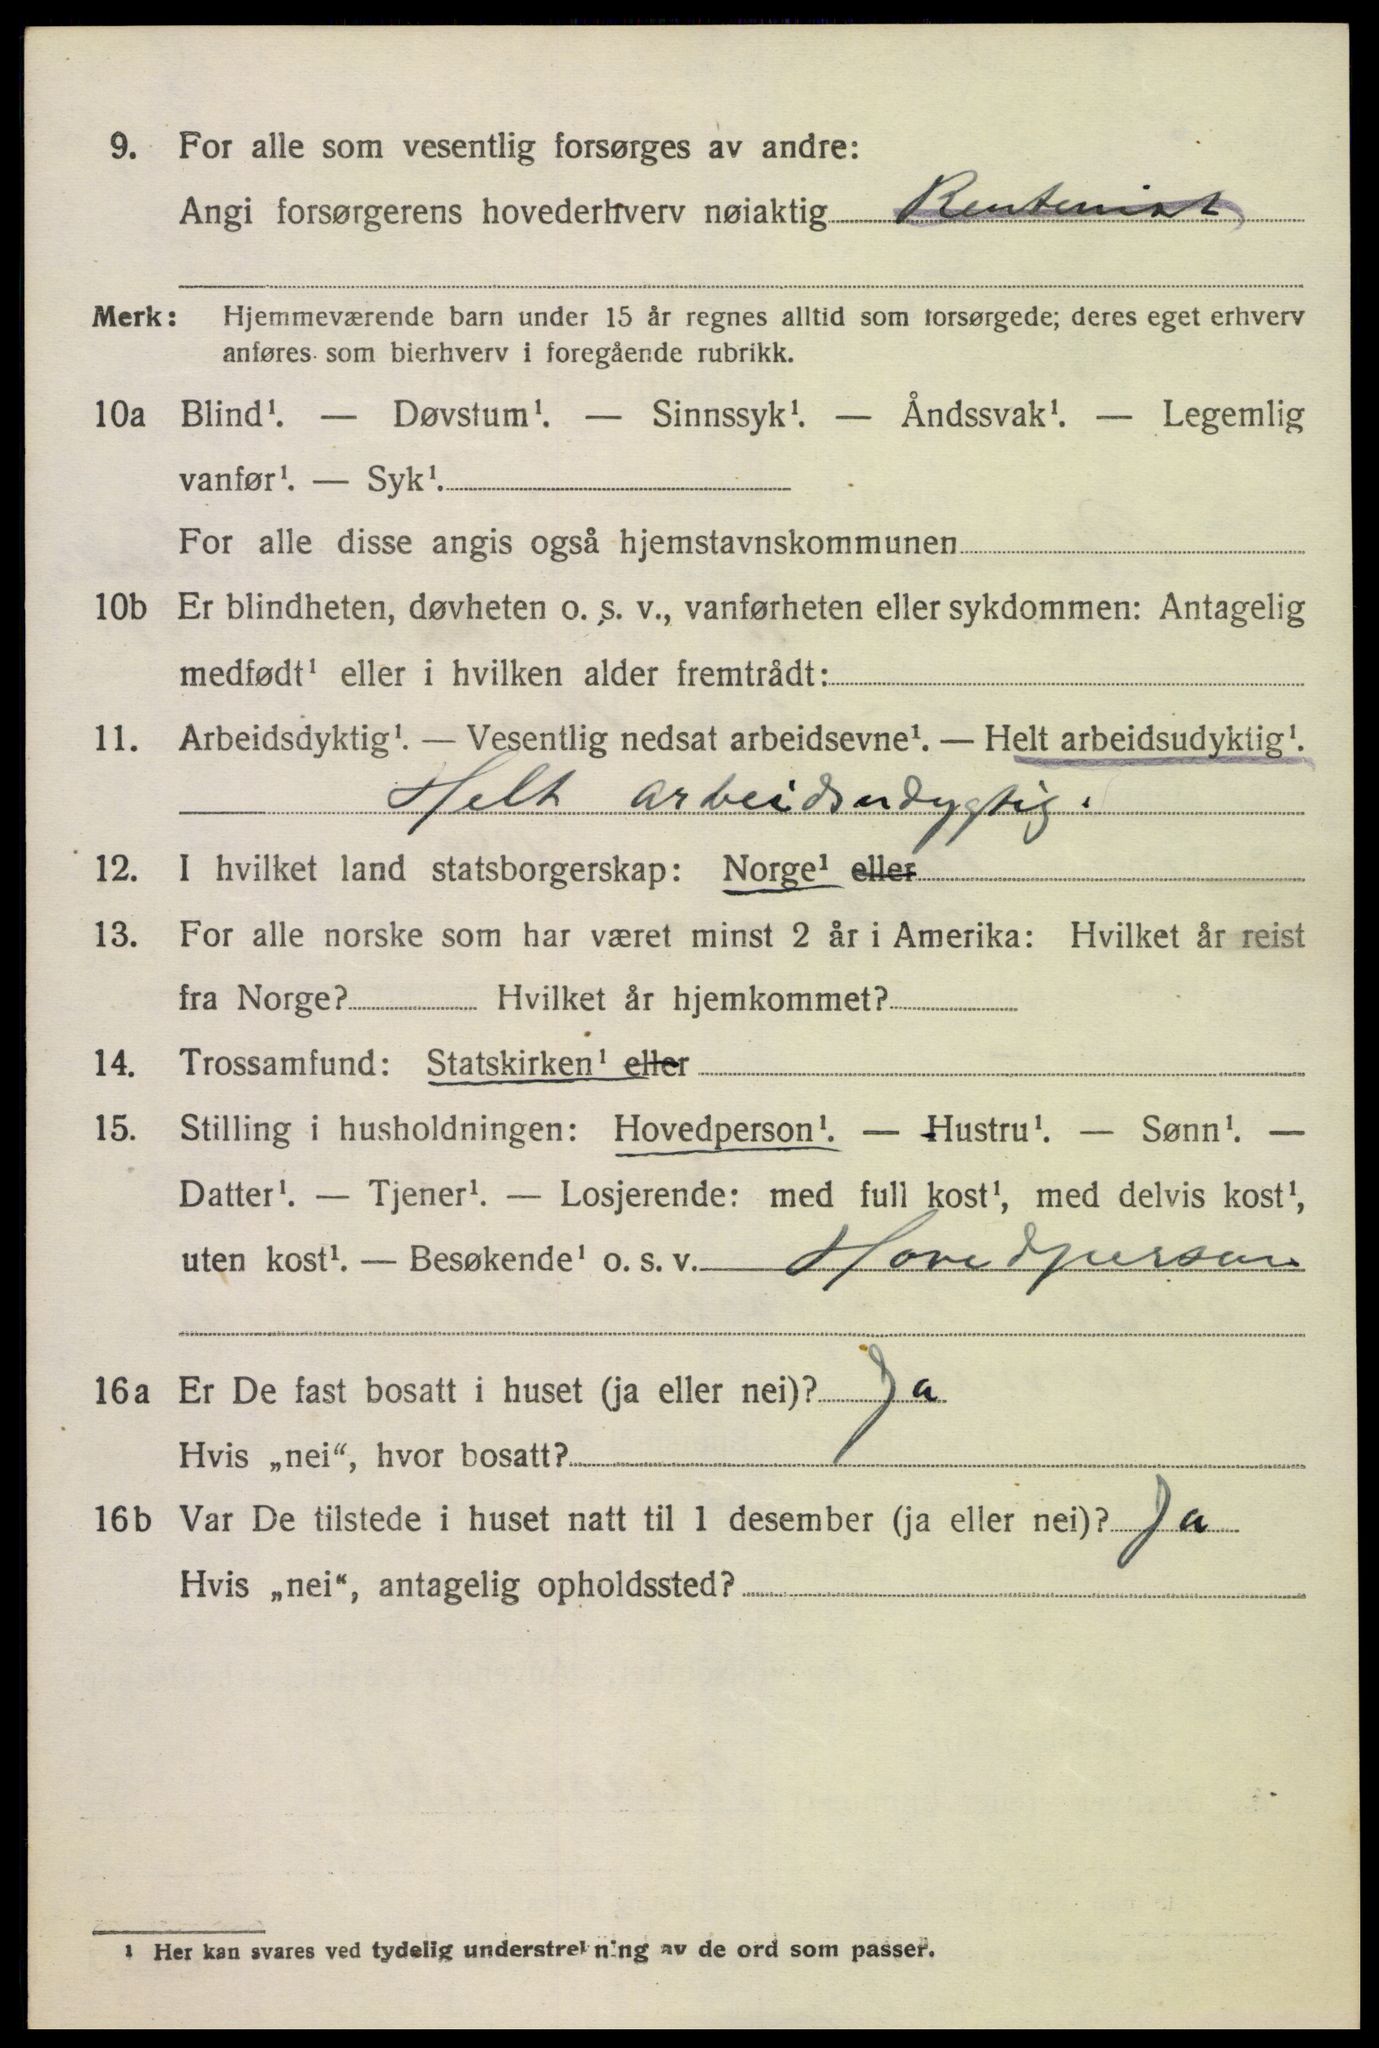 9. For alle som vesentlig forsørges av andre:
Angi forsørgerens hovederhverv nøiaktig Rentenist
Merk: Hjemmeværende barn under 15 år regnes alltid som forsørgede; deres eget erhverv
anføres som bierhverv i foregående rubrikk.
10a Blind¹. — Døvstum¹. — Sinnssyk¹. — Åndssvak¹. — Legemlig
vanfør¹. — Syk¹.
For alle disse angis også hjemstavnskommunen
10b Er blindheten, døvheten o. s. v., vanførheten eller sykdommen: Antagelig
medfødt¹ eller i hvilken alder fremtrådt:
11. Arbeidsdyktig¹. — Vesentlig nedsat arbeidsevne¹. — Helt arbeidsudyktig¹.
Helt arbeidsudygtig.
12. I hvilket land statsborgerskap: Norge¹ eller
13. For alle norske som har været minst 2 år i Amerika: Hvilket år reist
fra Norge? Hvilket år hjemkommet?
14. Trossamfund: Statskirken¹ eller
15. Stilling i husholdningen: Hovedperson¹. — Hustru¹. — Sønn¹. —
Datter¹. — Tjener¹. — Losjerende: med full kost¹, med delvis kost¹,
uten kost¹. — Besøkende¹ o. s. v. Hovedperson
16a Er De fast bosatt i huset (ja eller nei)? Ja
Hvis „nei“, hvor bosatt?
16b Var De tilstede i huset natt til 1 desember (ja eller nei)? Ja
Hvis „nei“, antagelig opholdssted?
1 Her kan svares ved tydelig understrekning av de ord som passer.